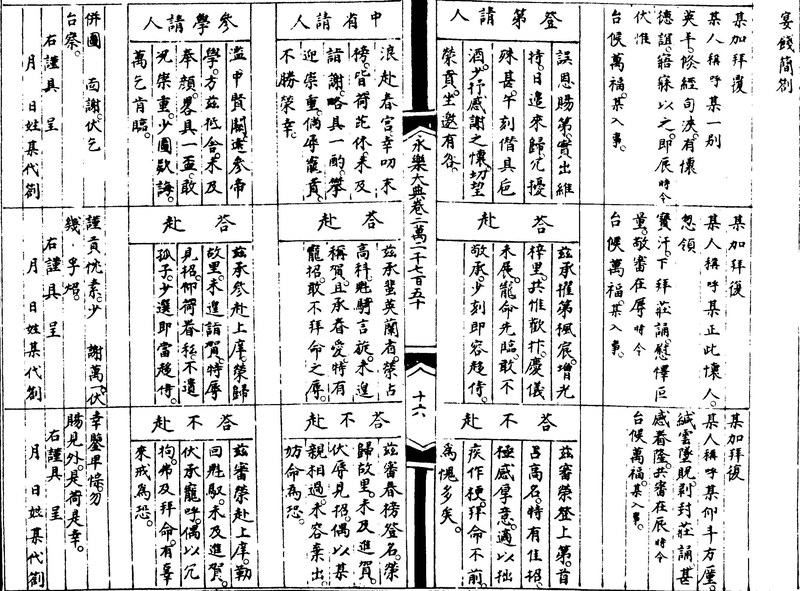 宴餞簡劄
某加拜覆
某人稱呼某一别
英丰。倐經旬浹。有懷
德誼。寤寐以之。即辰時令
伏惟
台候萬福。某入事。
登第請人
誤恩賜第。實出維
持。日邊來歸。冗擾
殊甚。午刻借具卮
酒。少抒感謝之懷。切望
榮賁。坐邀有咎。
中省請人
浪赴春宮。幸叨末
榜。皆荷芘休。未及
詣謝。略具一酌。攀
迎崇重。倘辱寵賁。
不勝榮幸。
參學請人
濫中賢關。進參帝
學。方兹抵舍。未及
奉顔。畧具一盃。敢
况崇重。少圖欵誨。
萬乞肯臨。
併圖 面謝。伏乞
台察。
右謹具 呈
月 日姓某代劄
某加拜復
某人稱呼某正此懷人。
忽領
寳汗。下拜莊誦。慰懌叵
量。敬審在辱時令
台候萬福。某入事。
答赴
兹承擢第楓宸。增光
梓里。共惟歡抃。慶儀
未展。寵命先臨。敢不
敬承。少刻即容趍侍。
答赴
兹承蜚英蘭省。榮占
高科。甡騎言旋。未遑
稱賀。且承眷愛。特有
寵招。敢不拜命之辱。
答赴
兹承參赴上庠。榮歸
故里。未進詣賀。特辱
見招。仰荷眷私。不遺
孤子。少選即當趍侍。
謹賁忱素。少 謝萬一。伏
幾孚炤。
右謹具 呈
月 日姓某代劄
某加拜復
某人稱呼某仰斗方廑。
緘雲墜貺。剥封莊誦。甚
感眷隆。共審在辰時令
台候萬福。某入事。
答不赴
兹審榮登上第。首
占高名。特有佳招。
極感厚意。適以拙
疾作梗。拜命不前。
為愧多矣。
答不赴
兹審春榜登名。榮
歸故里。未及進賀。
伏辱見招。偶以某
親相過。未容棄出。
妨命為恐。
答不赴
兹審榮赴上庠。勒
回甡馭。未及進賀。
伏承寵呼。偶以冗
拘。弗及拜命。有辜
來戒為恐。
幸鑒卑悰。勿
賜見外。是荷是幸。
右謹具 呈
月 日姓某代劄
永樂大典卷二萬二千七百五十
十六